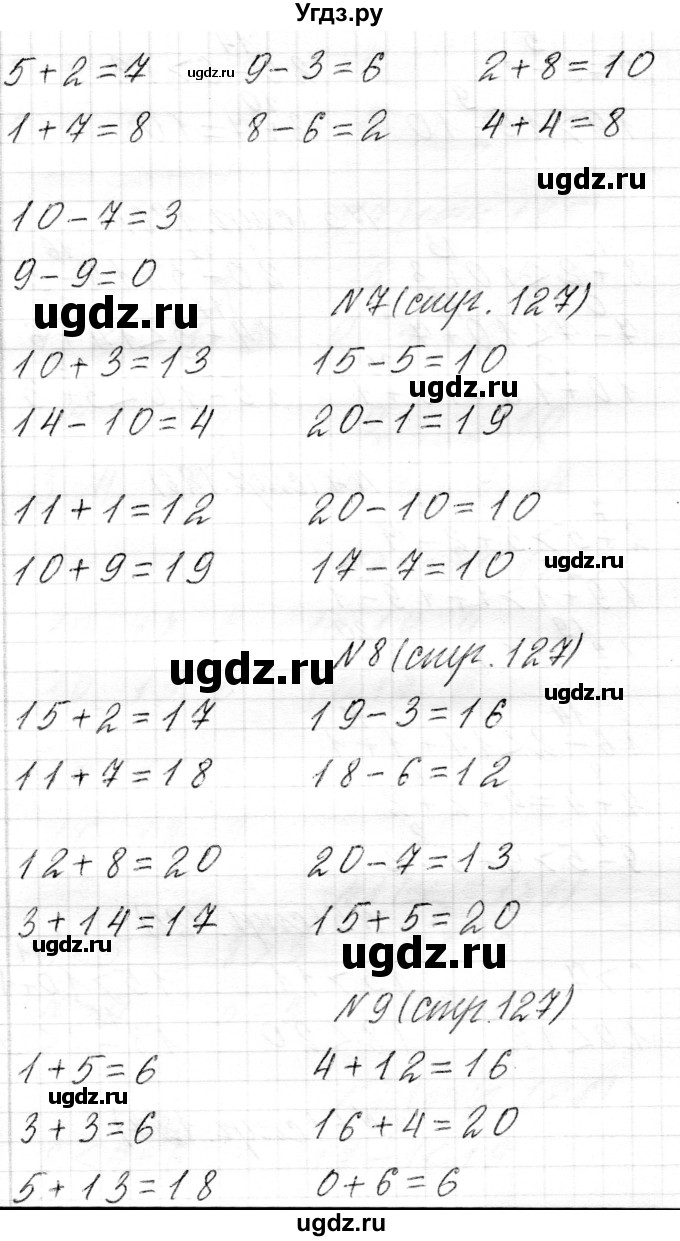 Угдз.ру
5+2=7 9-3=6 2+8=10
ugdz.ru
1+7=8 8-6=2 4+4=8
ugdz.ru
10-7=3
9-9=0
ugdz.ru
N7(стр. 127)
10+3=13 15-5=10
ugdz.ru
14-10=4 20-1=19
11+1=12 20-10=10
10+9=19 17-7=10
ugdz.ru
N8(стр. 127)
ugdz.ru
ugdz.ru
15+2=17 19-3=16
11+7=18 18-6=12
12+8=20 20-7=13
3+14=17 15+5=20
ugdz.ru
ugdz.ru
N9(стр.127)
1+5=6 4+12=16
ugdz.ru
3+3=6 16+4=20
5+13=18 0+6=6
ugdz.ru